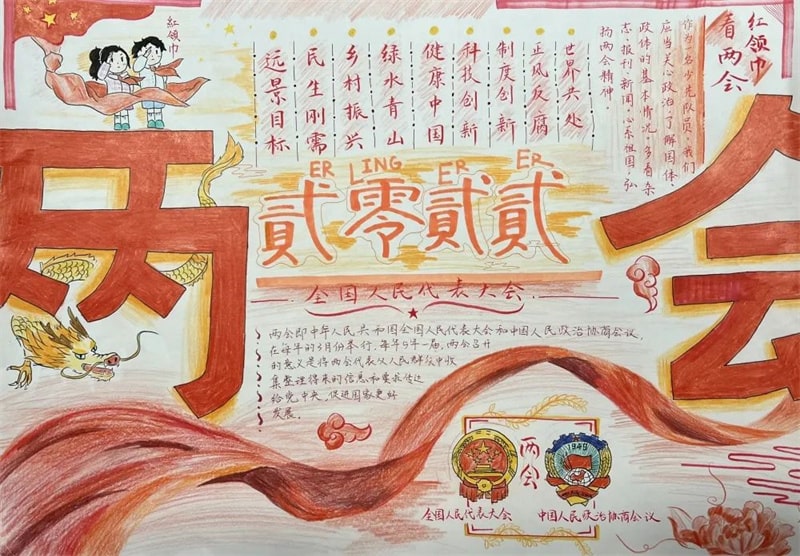 红领巾
看两会
作为一名少先队员,我们
应当关心政治,了解国体、
政体的基本情况,多看杂
志、报刊、新闻,心系祖国,弘
扬两会精神。
世界共处
正风反腐
制度创新
科技创新
健康中国
绿水青山
乡村振兴
民生刚需
远景目标
紅領巾
两会
ER LING ER ER
貳零貳貳
全国人民代表大会
两会即中华人民共和国全国人民代表大会和中国人民政治协商会议,
在每年的3月份举行,每年5年一届,两会召开
的意义是将两会代表从人民群众中收
集整理得来的信息和要求传达
给党中央,促进国家更好
发展。
两会
1949
全国人民代表大会
中国人民政治协商会议